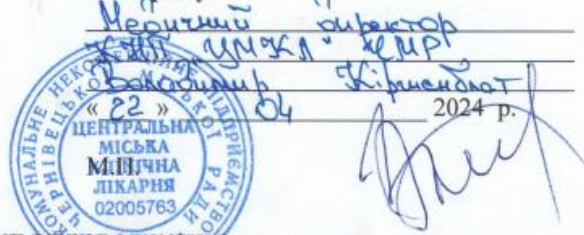 Медичний директор
КНП "ЦМКЛ" ЧМР
Володимир Кіршенблат
« 22 » 04 2024 р.
М.П.
КОМУНАЛЬНЕ НЕКОМЕРЦІЙНЕ ПІДПРИЄМСТВО
ЧЕРНІВЕЦЬКОЇ МІСЬКОЇ РАДИ
ЦЕНТРАЛЬНА
МІСЬКА
КЛІНІЧНА
ЛІКАРНЯ
02005763